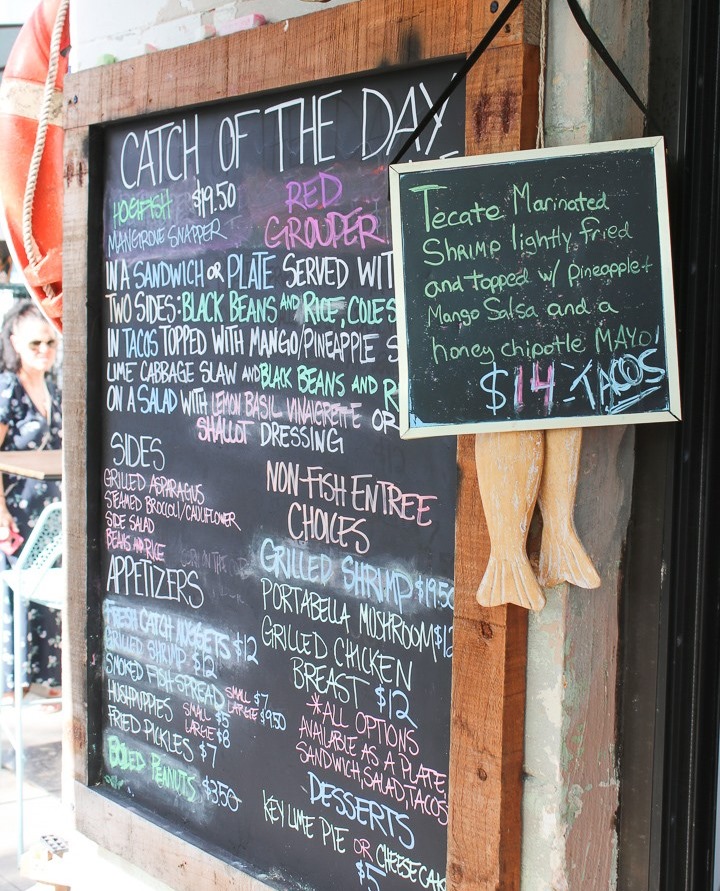 CATCH OF THE DAY
HOGFISH $19.50
MANGROVE SNAPPER
RED
GROUPER
IN A SANDWICH OR PLATE SERVED WIT
TWO SIDES: BLACK BEANS AND RICE, COLES
IN TACOS TOPPED WITH MANGO/PINEAPPLE S
LIME CABBAGE SLAW AND BLACK BEANS AND R
ON A SALAD WITH LEMON BASIL VINAIGRETTE OR
SHALLOT DRESSING
SIDES
GRILLED ASPARAGUS
STEAMED BROCCOLI/CAULIFLOWER
SIDE SALAD
BEANS AND RICE
APPETIZERS
FRESH CATCH NUGGETS $12
GRILLED SHRIMP $12
SMOKED FISH SPREAD SMALL $7 LARGE $9.50
HUSHPUPPIES SMALL $5 LARGE $8
FRIED PICKLES $7
BOILED PEANUTS $3.50
NON-FISH ENTREE
CHOICES
GRILLED SHRIMP $19.50
PORTABELLA MUSHROOM $12
GRILLED CHICKEN
BREAST $12
*ALL OPTIONS
AVAILABLE AS A PLATE,
SANDWICH, SALAD, TACOS
DESSERTS
KEY LIME PIE OR CHEESECAK
$5
Tecate Marinated
Shrimp lightly fried
and topped w/ Pineapple+
Mango Salsa and a
honey chipotle MAYO!
$14 - TACOS